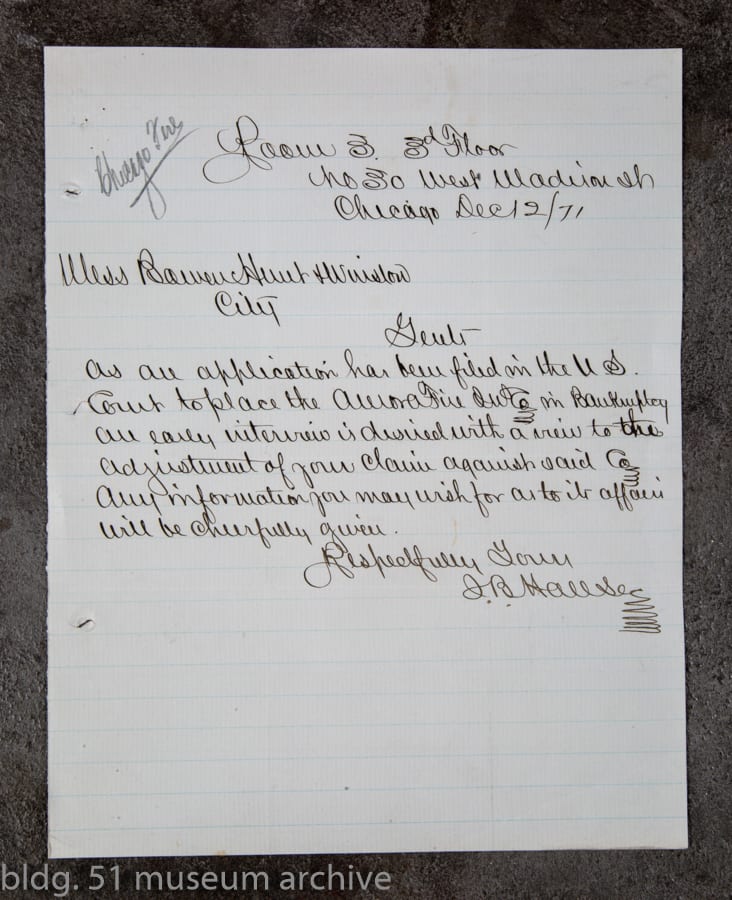 Chicago Fire
Room 3. 3d Floor
No 30 West Madison St
Chicago Dec 12/71
Mess Bowen Hunt & Winslow
City
Gents
As an application has been filed in the U S.
Court to place the Aurora Fire Ins Co in Bankruptcy
an early interview is desired with a view to the
adjustment of your Claim against said Co
Any information you may wish for as to its affairs
will be cheerfully given.
Respectfully Yours
J.B. Hall Sec
bldg. 51 museum archive